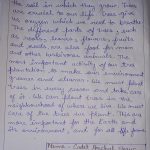 the soil in which they grow. Trees
are crucial to our life. Trees give
us oxygen which we need to breathe
The different parts of trees, such
as the leaves, flowers, fruits
and seeds are also food for men
and other animals.
The most important activity of our tree
plantation to make our environment
and. We must plant
Trees in every season and take care
of it. We can plant trees in the
neighbourhood of where we live. We must
care of the trees we plant. Trees are
important for the Earth and
its environment, and for all life forms
Name -